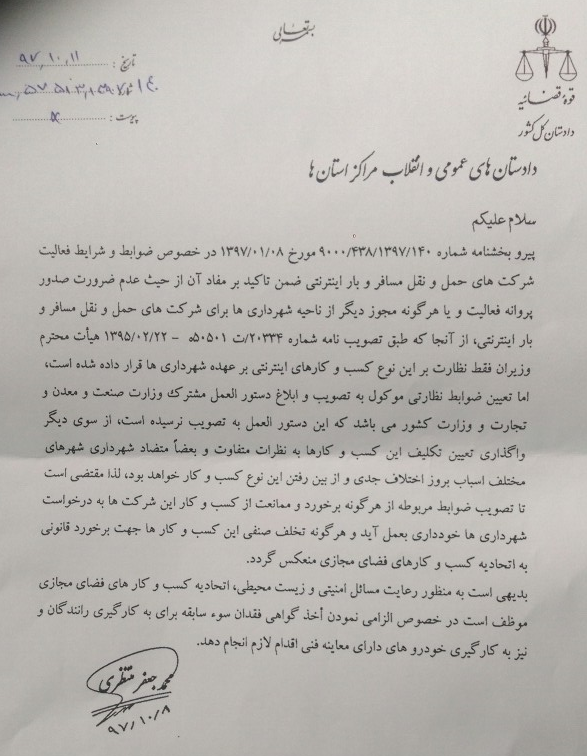 بسمه تعالی
قوه قضائیه
دادستان کل کشور
تاریخ : ۹۷,۱۰,۱۱
پیوست :
دادستان های عمومی و انقلاب مراکز استان ها
سلام علیکم
پیرو بخشنامه شماره ۹۰۰۰/۴۳۸/۱۳۹۷/۱۴۰ مورخ ۱۳۹۷/۰۱/۰۸ در خصوص ضوابط و شرایط فعالیت
شرکت های حمل و نقل مسافر و بار اینترنتی ضمن تاکید بر مفاد آن از حیث عدم ضرورت صدور
پروانه فعالیت و یا هرگونه مجوز دیگر از ناحیه شهرداری ها برای شرکت های حمل و نقل مسافر و
بار اینترنتی، از آنجا که طبق تصویب نامه شماره ۲۰۳۳۴/ت ۵۰۵۰۱ه - ۱۳۹۵/۰۲/۲۲ هیأت محترم
وزیران فقط نظارت بر این نوع کسب و کارهای اینترنتی بر عهده شهرداری ها قرار داده شده است،
اما تعیین ضوابط نظارتی موکول به تصویب و ابلاغ دستور العمل مشترک وزارت صنعت و معدن و
تجارت و وزارت کشور می باشد که این دستور العمل به تصویب نرسیده است، از سوی دیگر
واگذاری تعیین تکلیف این کسب و کارها به نظرات متفاوت و بعضاً متضاد شهرداری شهرهای
مختلف اسباب بروز اختلاف جدی و از بین رفتن این نوع کسب و کار خواهد بود، لذا مقتضی است
تا تصویب ضوابط مربوطه از هرگونه برخورد و ممانعت از کسب و کار این شرکت ها به درخواست
شهرداری ها خودداری بعمل آید و هرگونه تخلف صنفی این کسب و کار ها جهت برخورد قانونی
به اتحادیه کسب و کارهای فضای مجازی منعکس گردد.
بدیهی است به منظور رعایت مسائل امنیتی و زیست محیطی، اتحادیه کسب و کار های فضای مجازی
موظف است در خصوص الزامی نمودن أخذ گواهی فقدان سوء سابقه برای به کارگیری رانندگان و
نیز به کارگیری خودرو های دارای معاینه فنی اقدام لازم انجام دهد.
محمد جعفر منتظری
۹۷/۱۰/۸